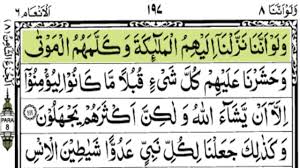 ولواننا ٨ ١٩٧ الانعام ٦
وَلَوْ اَنَّنَا نَزَّلْنَاۤ اِلَیْهِمُ الْمَلٰٓئِكَةَ وَكَلَّمَهُمُ الْمَوْتٰى
وَحَشَرْنَا عَلَیْهِمْ كُلَّ شَیْءٍ قُبُلًا مَّا كَانُوْا لِیُؤْمِنُوْۤا
اِلَّاۤ اَنْ یَّشَآءَ اللّٰهُ وَلٰكِنَّ اَكْثَرَهُمْ یَجْهَلُوْنَ
وَكَذٰلِكَ جَعَلْنَا لِكُلِّ نَبِیٍّ عَدُوًّا شَیٰطِیْنَ الْاِنْسِ
PARA
8